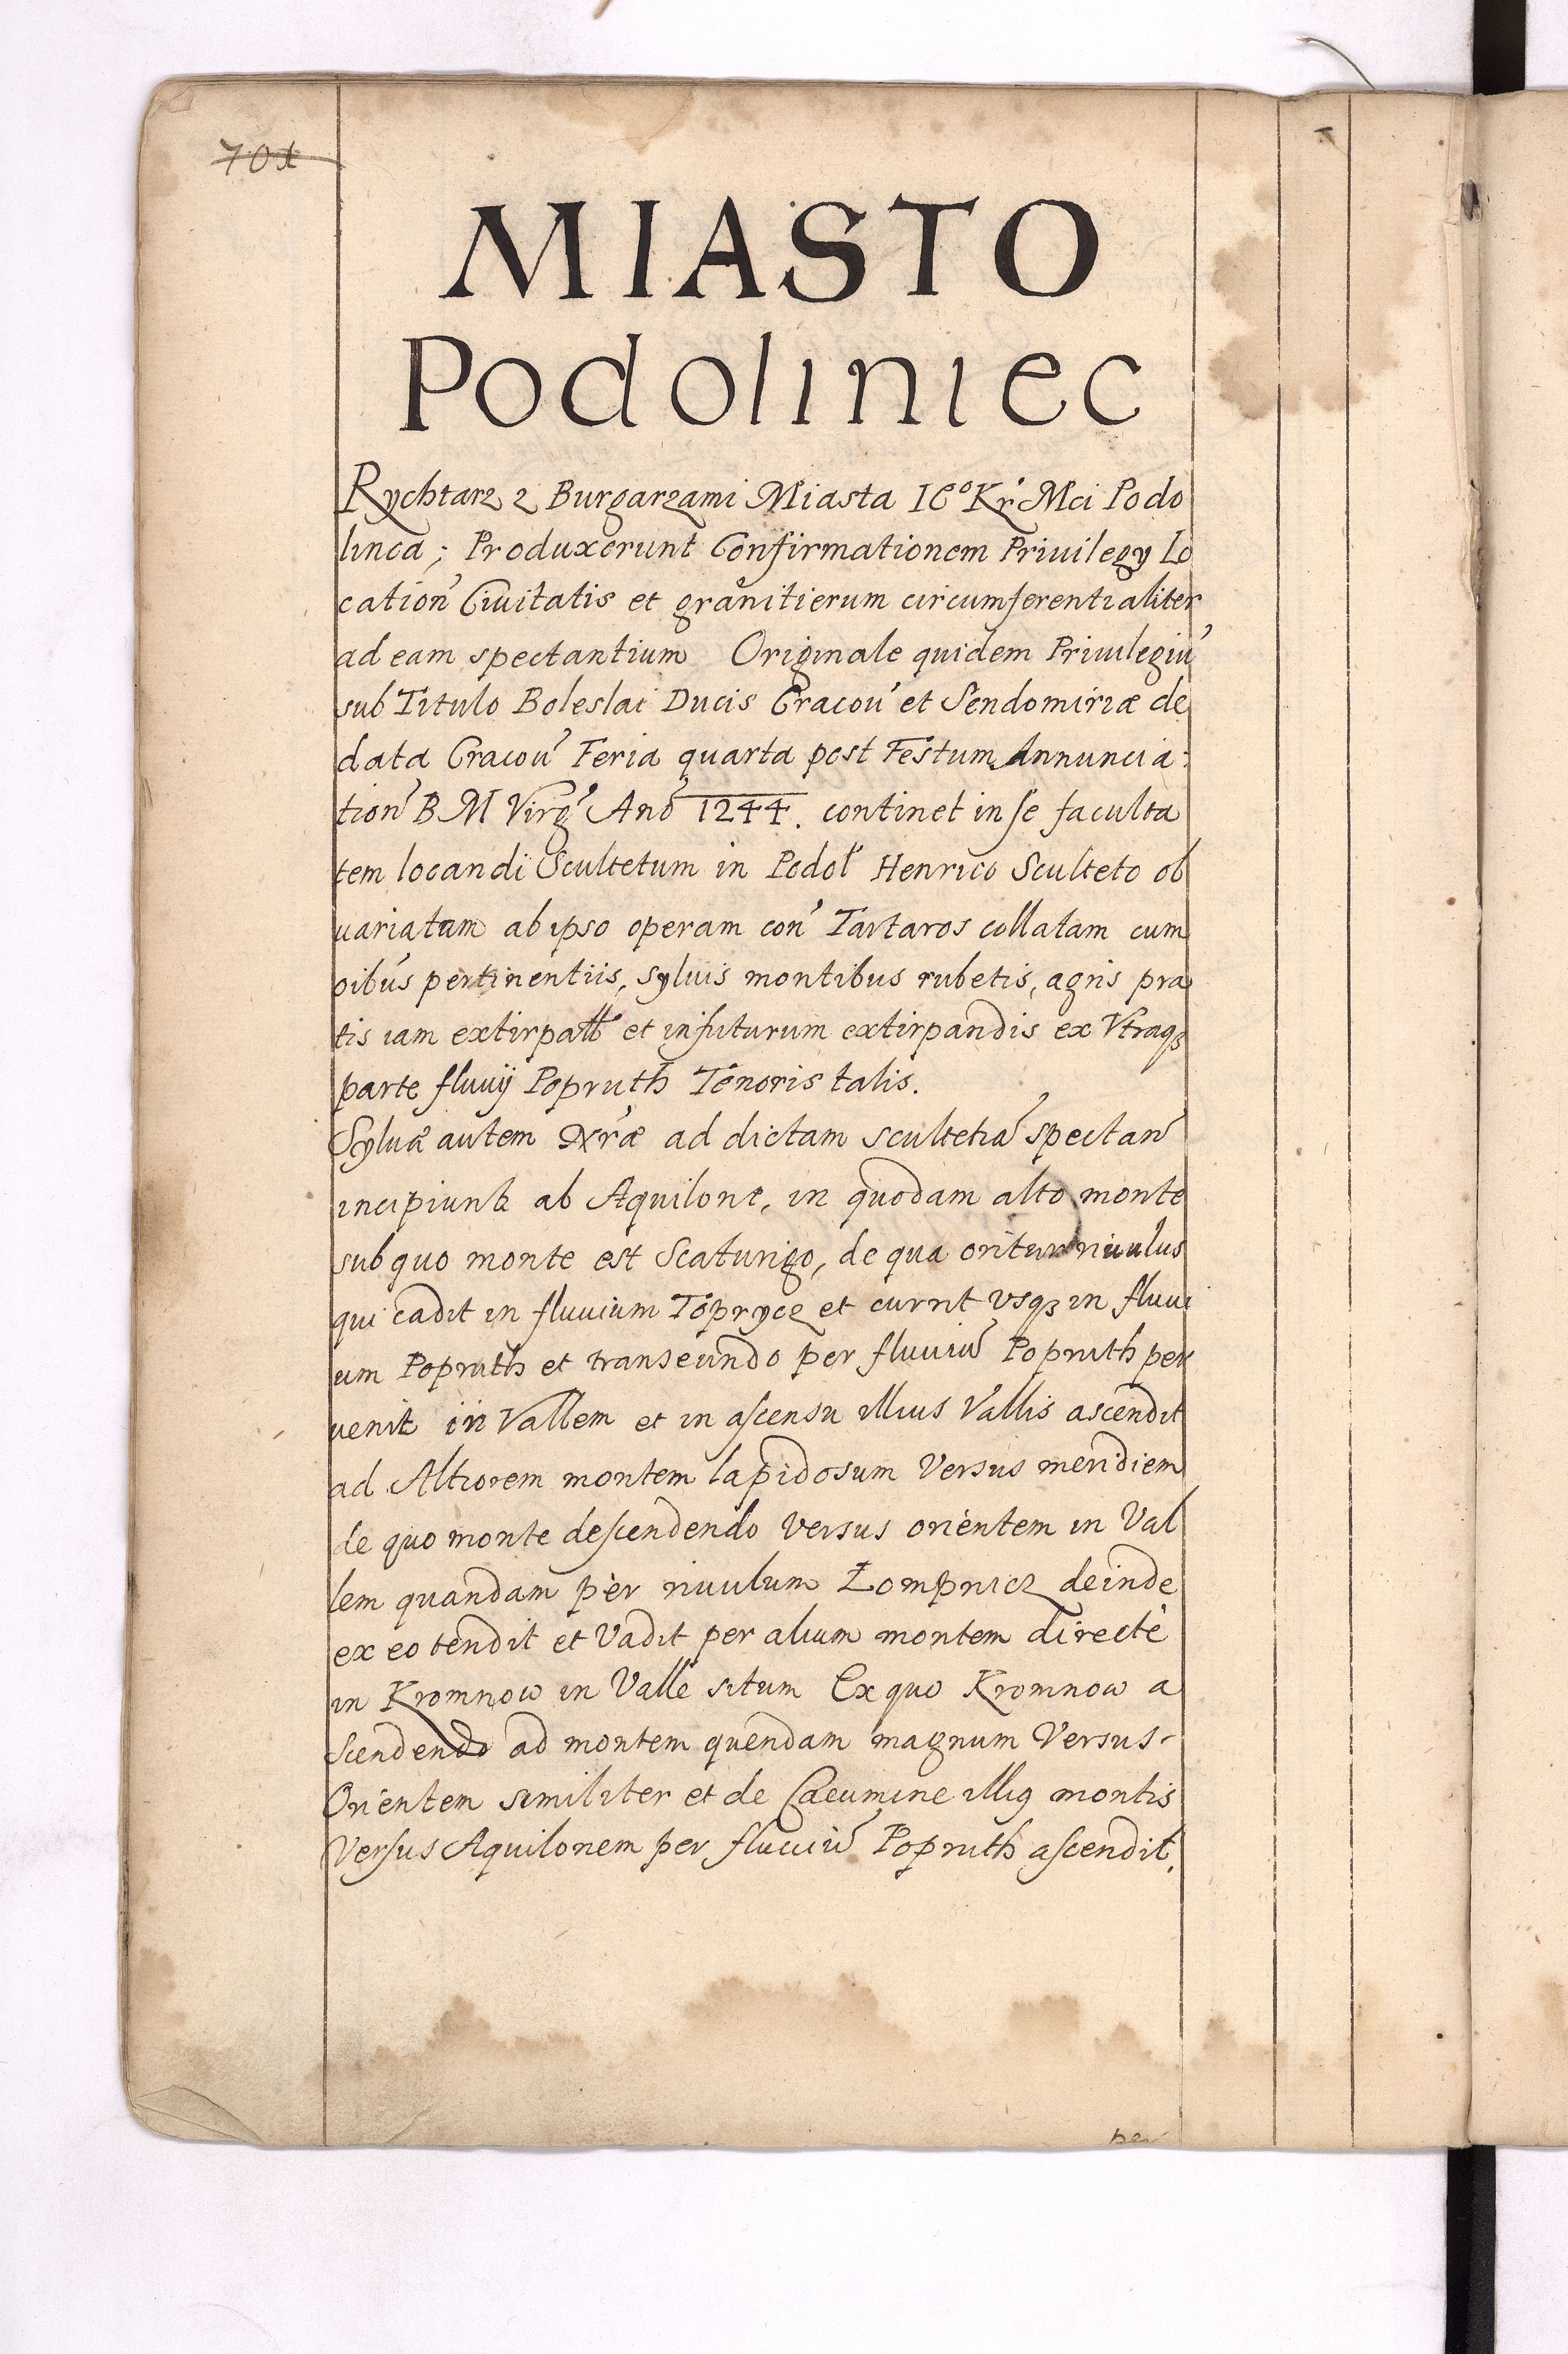 701
MIASTO
Podoliniec
Rychtarz z Burgarzami Miasta IE° Kr' Mci Podo
linca; Produxerunt Confirmationem Priuilegy Lo
cation' Ciuitatis et granitierum circumferentialiter
ad eam spectantium Originale quidem Priuilegiu'
sub Titulo Boleslai Ducis Cracou' et Sendomiriæ de
data Cracou' Feria quarta post Festum Annuncia:
tion' B M Virg' Ano' 1244. continet in se faculta
tem locandi Scultetum in Podol' Henrico Sculteto ob
uariatam ab ipso operam con' Tartaros collatam cum
oibus pertinentiis, syluis montibus rubetis, agris pra
tis iam extirpatt' et in futurum extirpandis ex Vtraqȝ
parte fluuij Popruth Tenoris talis.
Syluæ autem Nræ ad dictam scultetia' spectan'
incipiunt ab Aquilone, in quodam alto monte
sub quo monte est Scaturigo, de qua oritur riuulus
qui cadit in fluuium Toprycz et currit vsqȝ in fluui
um Popruth et transeundo per fluuiu' Popruth per
uenit in Vallem et in ascensu illius Vallis ascendit
ad Altiorem montem lapidosum Versus meridiem
de quo monte descendendo versus orientem in Val
lem quandam per riuulum Łompnicz deinde
ex eo tendit et Vadit per alium montem directè
in Kromnow in Valle situm Ex quo Kromnow a
scendendo ad montem quendam magnum Versus-
Orientem similiter et de Cacumine illiꝯ montis
Versus Aquilonem per fluuiu' Popruth ascendit.
per